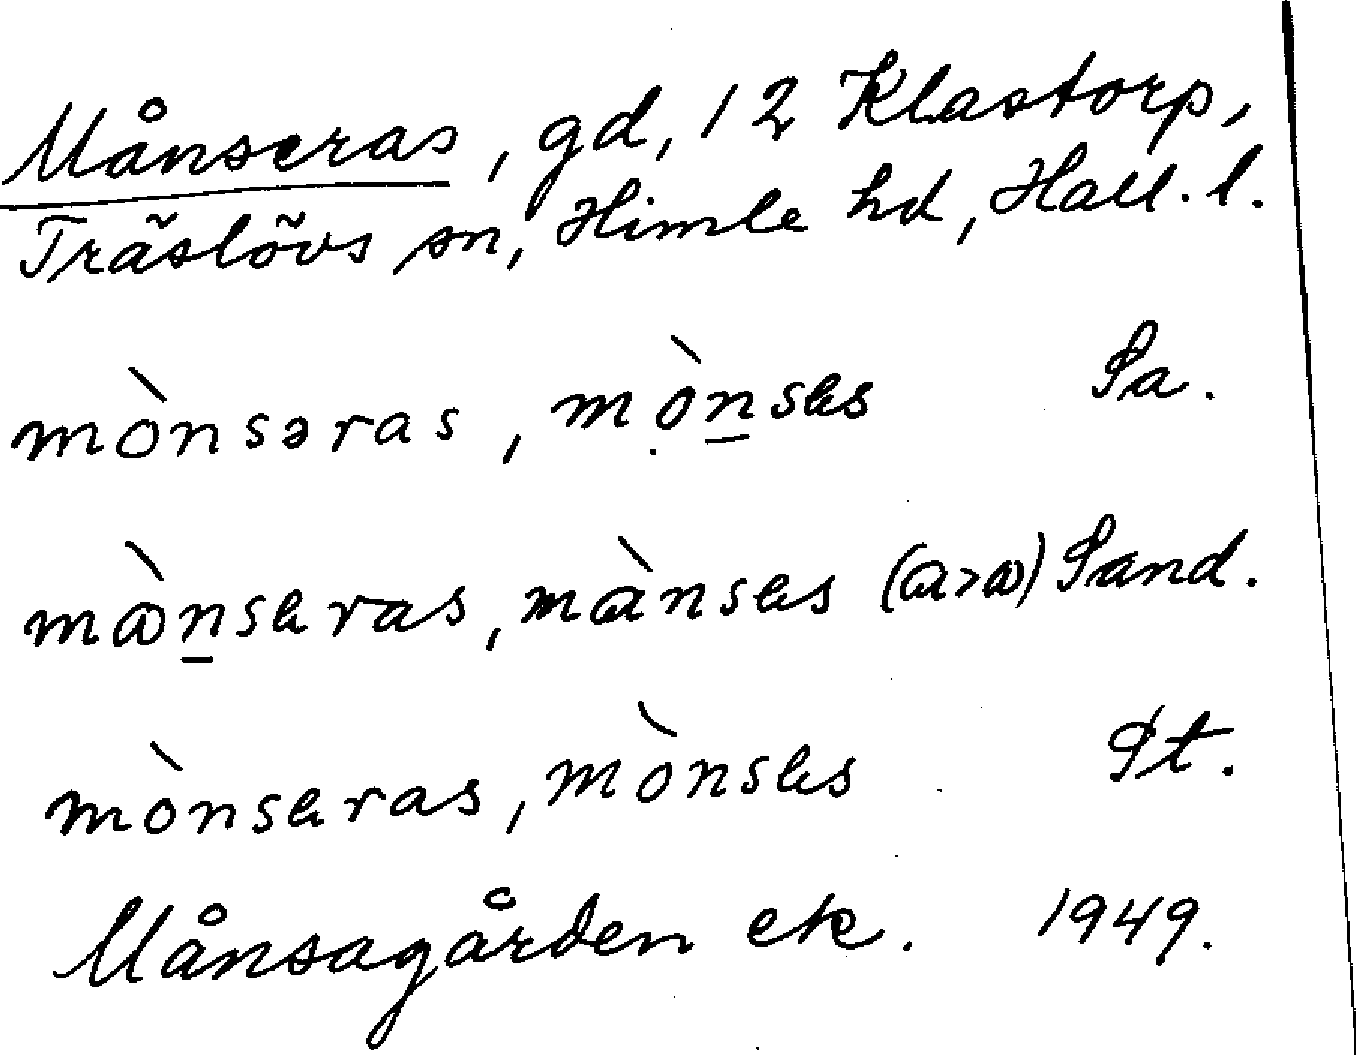 Månseras, gd, 12 Klastorp,
Träslövs sn, Himle hd, Hall. l.
mònsəras, mò̱nses Sa.
mɷ̀n̲seras, mɑ̀nses (ɑ>ɷ) Sand.
mònseras, mònses St.
Månsagården ek. 1949.